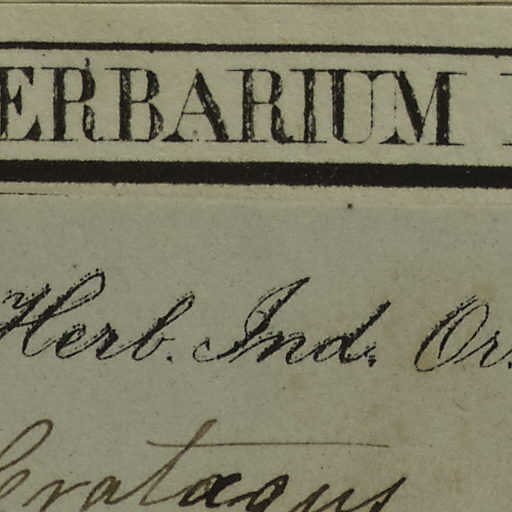 ERBARIUM
Herb. Ind. Or.
Cratægus